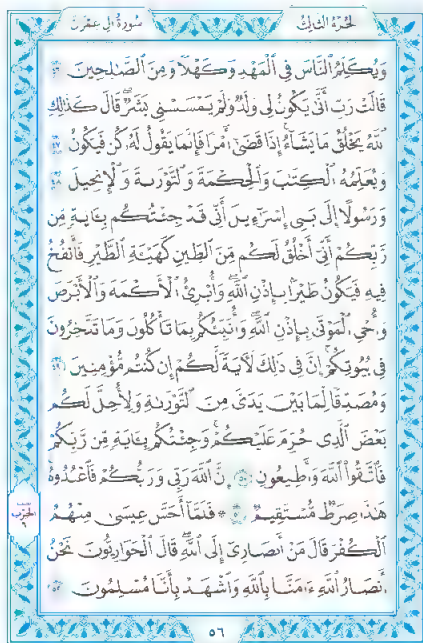 سُورَةُ آلِ عِمْرَانَ
الجُزْءُ الثَّالِثُ
وَيُكَلِّمُ ٱلنَّاسَ فِى ٱلْمَهْدِ وَكَهْلًا وَمِنَ ٱلصَّٰلِحِينَ ٤٦
قَالَتْ رَبِّ أَنَّىٰ يَكُونُ لِى وَلَدٌ وَلَمْ يَمْسَسْنِى بَشَرٌ قَالَ كَذَٰلِكِ
ٱللَّهُ يَخْلُقُ مَا يَشَآءُ إِذَا قَضَىٰٓ أَمْرًا فَإِنَّمَا يَقُولُ لَهُۥ كُن فَيَكُونُ ٤٧
وَيُعَلِّمُهُ ٱلْكِتَٰبَ وَٱلْحِكْمَةَ وَٱلتَّوْرَىٰةَ وَٱلْإِنجِيلَ ٤٨
وَرَسُولًا إِلَىٰ بَنِىٓ إِسْرَٰٓءِيلَ أَنِّى قَدْ جِئْتُكُم بِـَٔايَةٍ مِّن
رَّبِّكُمْ أَنِّىٓ أَخْلُقُ لَكُم مِّنَ ٱلطِّينِ كَهَيْـَٔةِ ٱلطَّيْرِ فَأَنفُخُ
فِيهِ فَيَكُونُ طَيْرًۢا بِإِذْنِ ٱللَّهِ وَأُبْرِئُ ٱلْأَكْمَهَ وَٱلْأَبْرَصَ
وَأُحْىِ ٱلْمَوْتَىٰ بِإِذْنِ ٱللَّهِ وَأُنَبِّئُكُم بِمَا تَأْكُلُونَ وَمَا تَدَّخِرُونَ
فِى بُيُوتِكُمْ إِنَّ فِى ذَٰلِكَ لَـَٔايَةً لَّكُمْ إِن كُنتُم مُّؤْمِنِينَ ٤٩
وَمُصَدِّقًا لِّمَا بَيْنَ يَدَىَّ مِنَ ٱلتَّوْرَىٰةِ وَلِأُحِلَّ لَكُم
بَعْضَ ٱلَّذِى حُرِّمَ عَلَيْكُمْ وَجِئْتُكُم بِـَٔايَةٍ مِّن رَّبِّكُمْ
فَٱتَّقُوا۟ ٱللَّهَ وَأَطِيعُونِ ٥٠ إِنَّ ٱللَّهَ رَبِّى وَرَبُّكُمْ فَٱعْبُدُوهُ
هَٰذَا صِرَٰطٌ مُّسْتَقِيمٌ ٥١ ۞ فَلَمَّآ أَحَسَّ عِيسَىٰ مِنْهُمُ
ٱلْكُفْرَ قَالَ مَنْ أَنصَارِىٓ إِلَى ٱللَّهِ قَالَ ٱلْحَوَارِيُّونَ نَحْنُ
أَنصَارُ ٱللَّهِ ءَامَنَّا بِٱللَّهِ وَٱشْهَدْ بِأَنَّا مُسْلِمُونَ ٥٢
نصف
الحزب
٦
٥٦